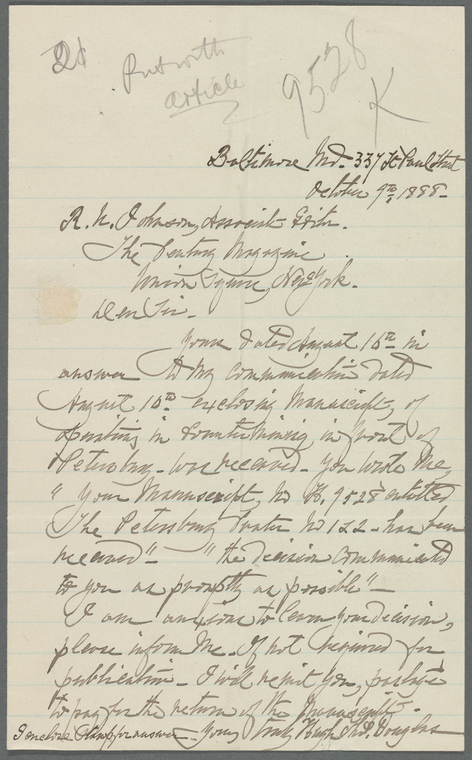 Put with
article
9528
K
Baltimore Md. 337 St Paul Street
October 9th, 1888-
R. U. Johnson, Associate Editor.
The Century Magazine
Union Square, New York.
Dear Sir.
Yours dated August 16th in
answer to my communication dated
August 10th enclosing Manuscript, of
in Countermining in front of
Petersburg- was received- you wrote me,
" Your Manuscript, No 9528 entitled
The Petersburg Crater No 122- has been
received"- "the decision communicated
to you as promptly as possible"-
I am anxious to learn your decision,
please inform me. If not required for
publication- I will remit you, postage
to pay for the return of the Manuscript-
I enclose Stamp for answer- Yours truly Hugh Thos. Douglas